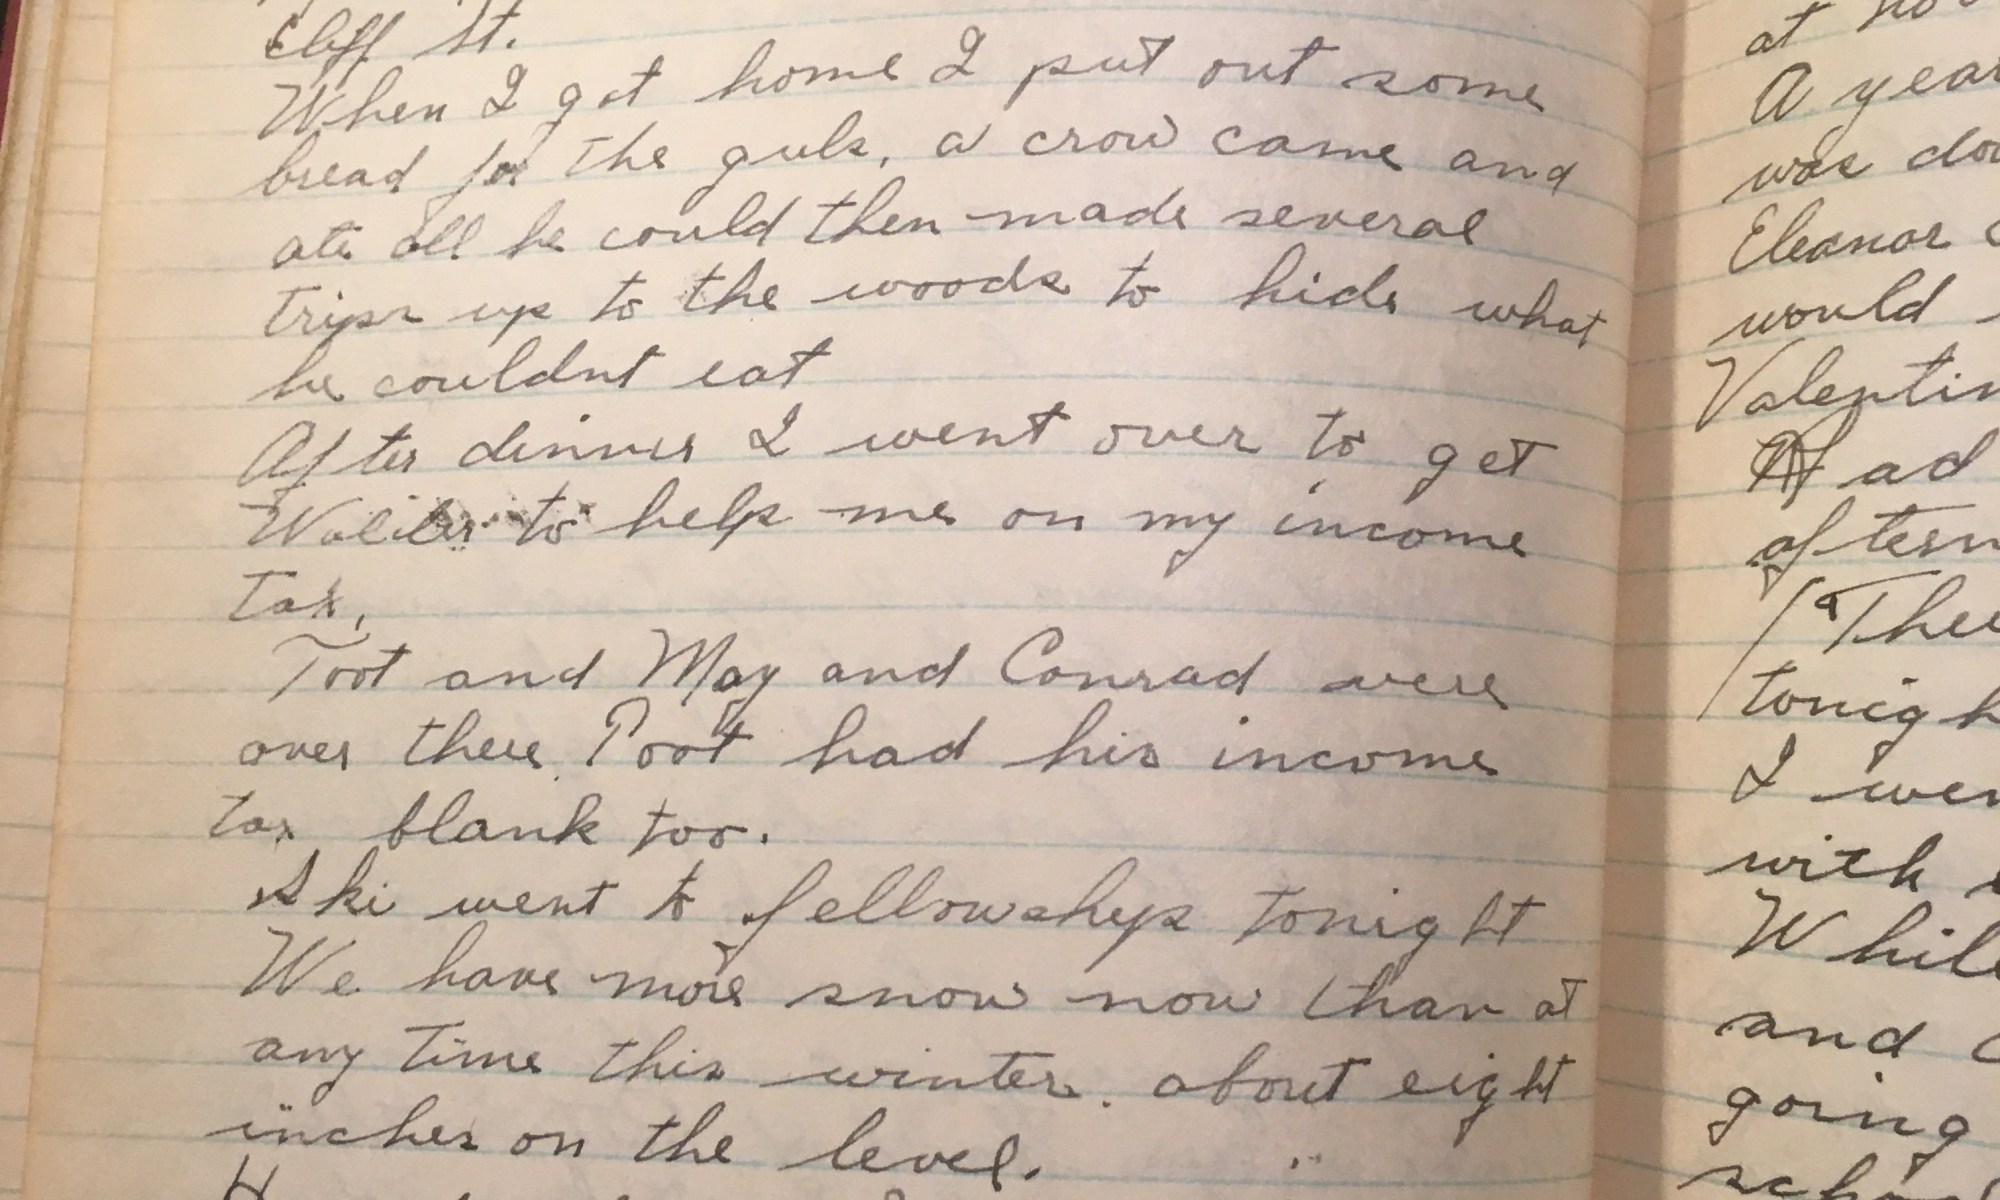 Cliff St.
When I got home I put out some
bread for the guls, a crow came and
ate all he could then made several
trips up to the woods to hide what
he couldnt eat
After dinner I went over to get
Walter to help me on my income
tax,
Toot and May and Conrad were
over there. Toot had his income
tax blank too.
Ski went to fellowship tonight
We have more snow now than at
any time this winter. about eight
inches on the level.
at
A year
was
Eleanor
would
Valentin
Had
aftern
tonigh
I wen
with
While
and
going
scho